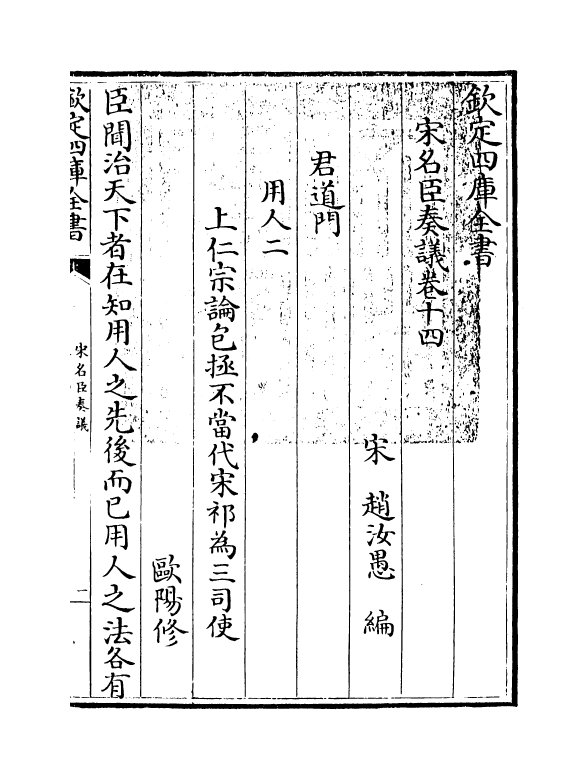 欽定四庫全書
宋名臣奏議卷十四
宋 趙汝愚 編
君道門
用人二
上仁宗論包拯不當代宋祁為三司使
歐陽修
臣聞治天下者在知用人之先後而已用人之法各有
欽定四庫全書
宋名臣奏議
二